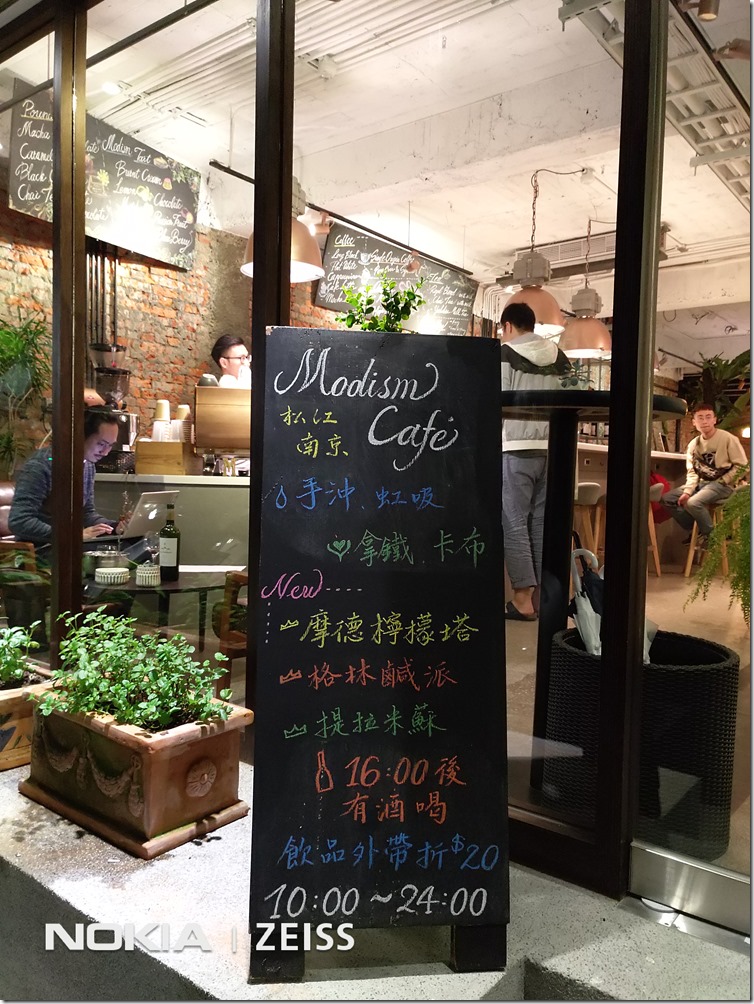 Modism
Café
松江
南京
手沖、虹吸
拿鐵、卡布
New----
摩德檸檬塔
格林鹹派
提拉米蘇
16:00後
有酒喝
飲品外帶折$20
10:00~24:00
NOKIA | ZEISS
Macha
Caramel
Modism Toast
Brunt Cream
Lemon
Chocolate
Coffee
Long Black
Flat White
Single Origin Coffee